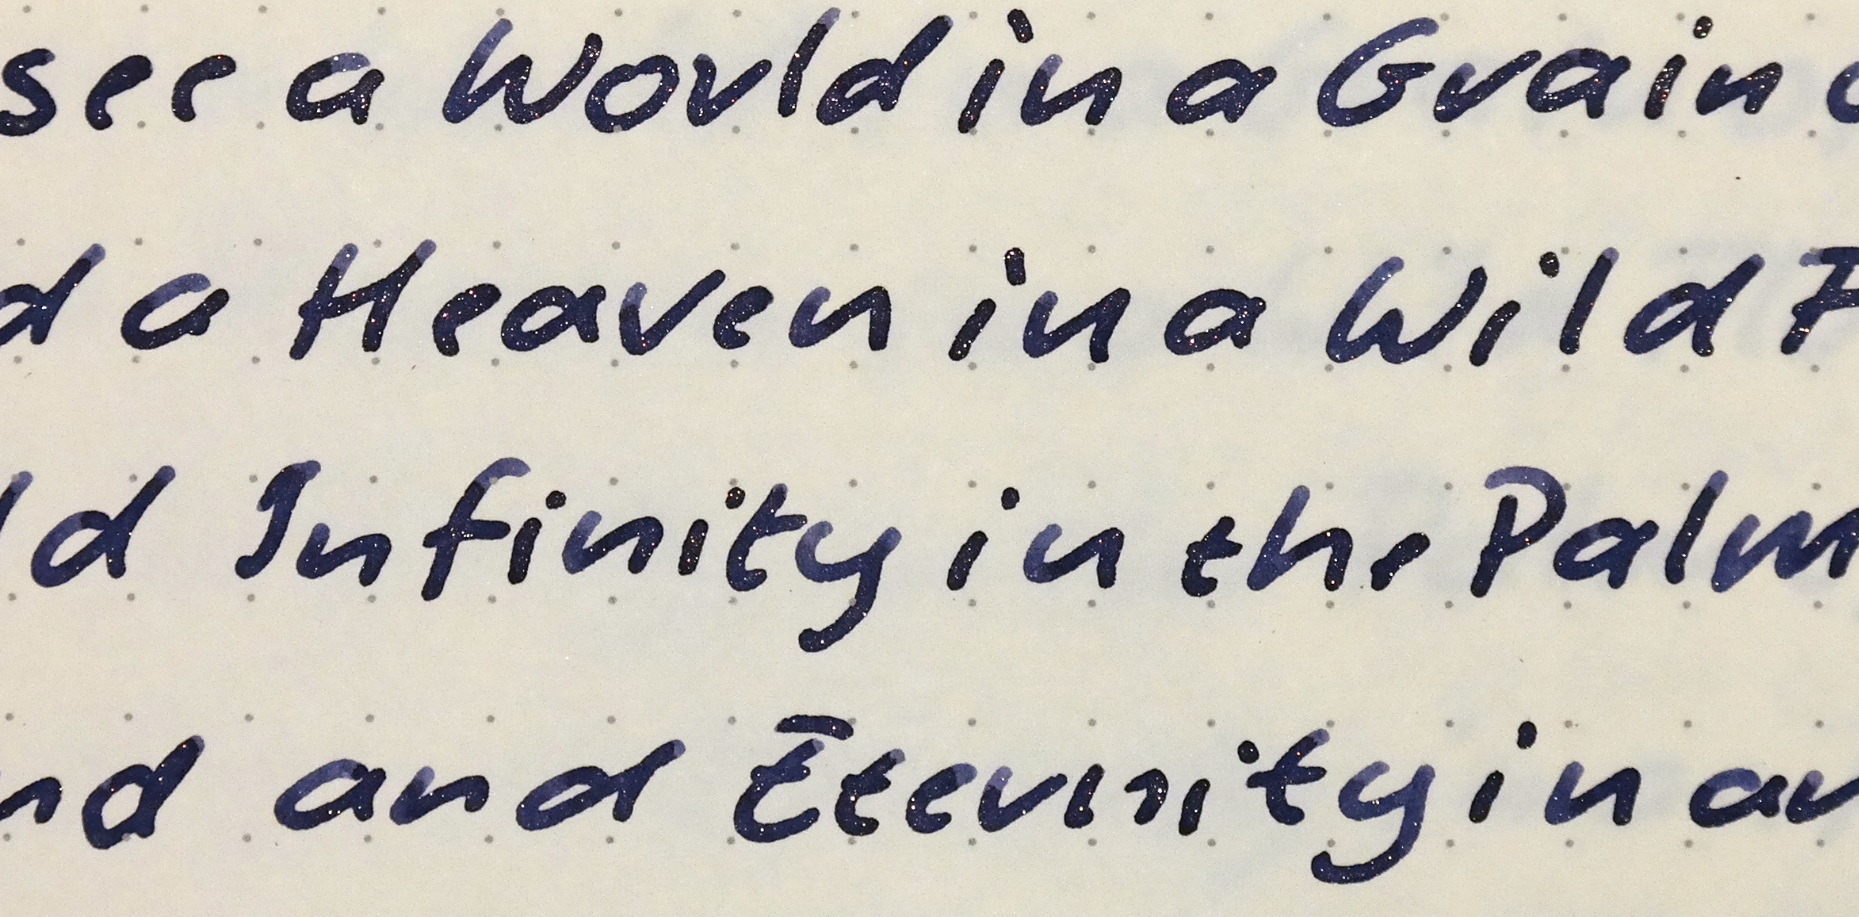 see a World in a Grain o
d a Heaven in a Wild F
ld Infinity in the Palm
nd and Eternity in an